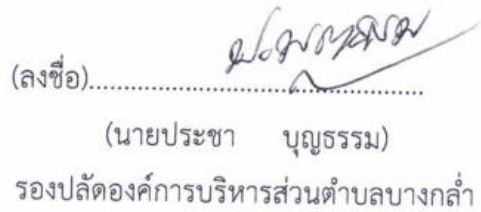 (ลงชื่อ)........................................................
(นายประชา บุญธรรม)
รองปลัดองค์การบริหารส่วนตำบลบางกล่ำ